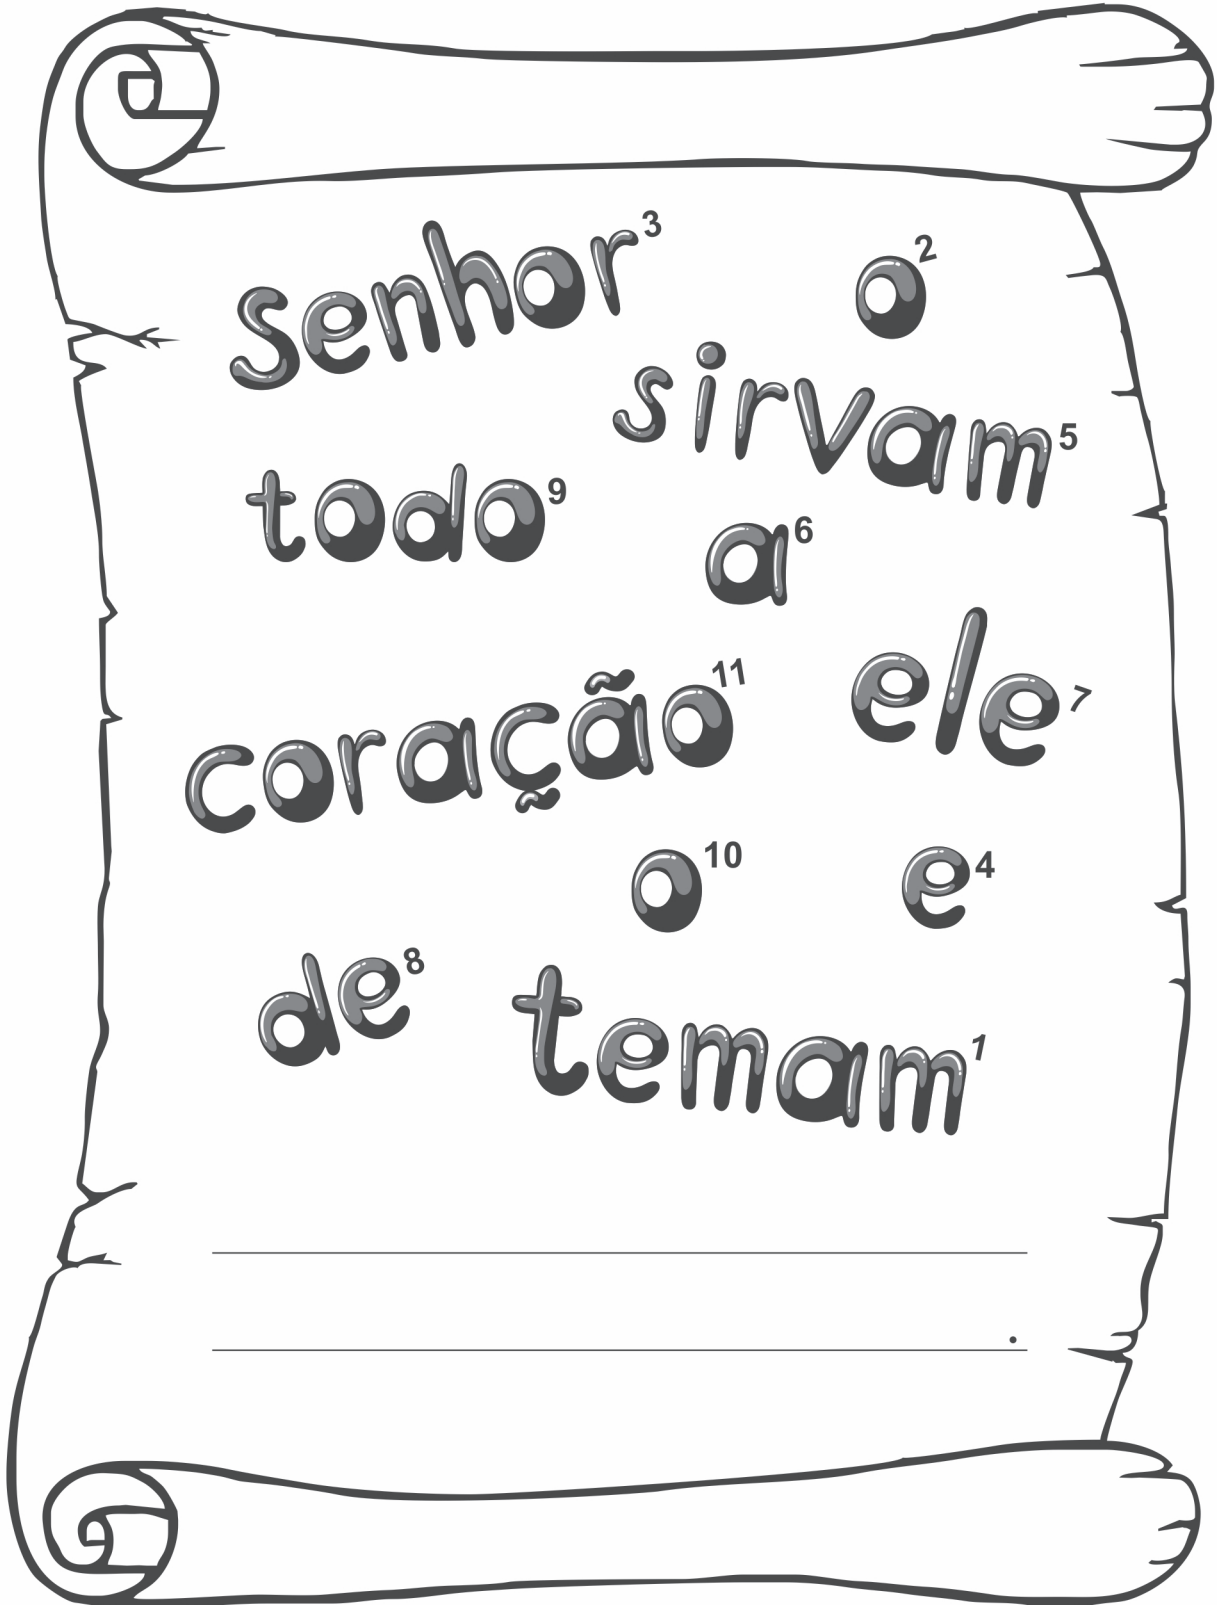 senhor³
o²
sirvam⁵
todo⁹
a⁶
ele⁷
coração¹¹
o¹⁰
e⁴
de⁸
temam¹
.